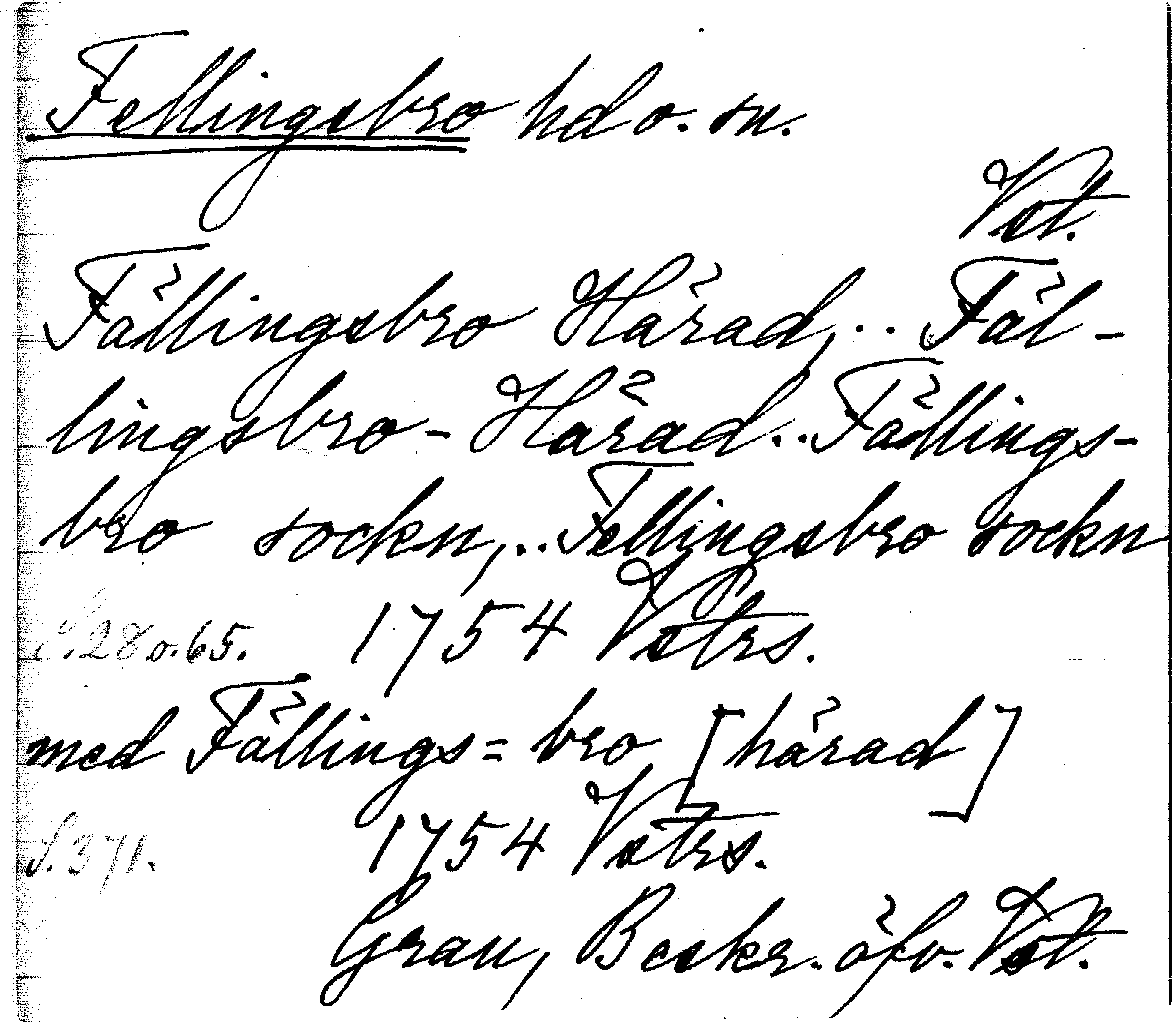 Fellingsbro hd o. sn.
Vst.
Fällingsbro Härad,.. Fäl-
lingsbro-Härad..Fällings-
bro sockn,..Fellingsbro sockn
S.28 o.65. 1754 Vstrs.
med Fällings= bro [härad]
S.371. 1754 Vstrs.
Grau, Beskr. öfv. Vst.